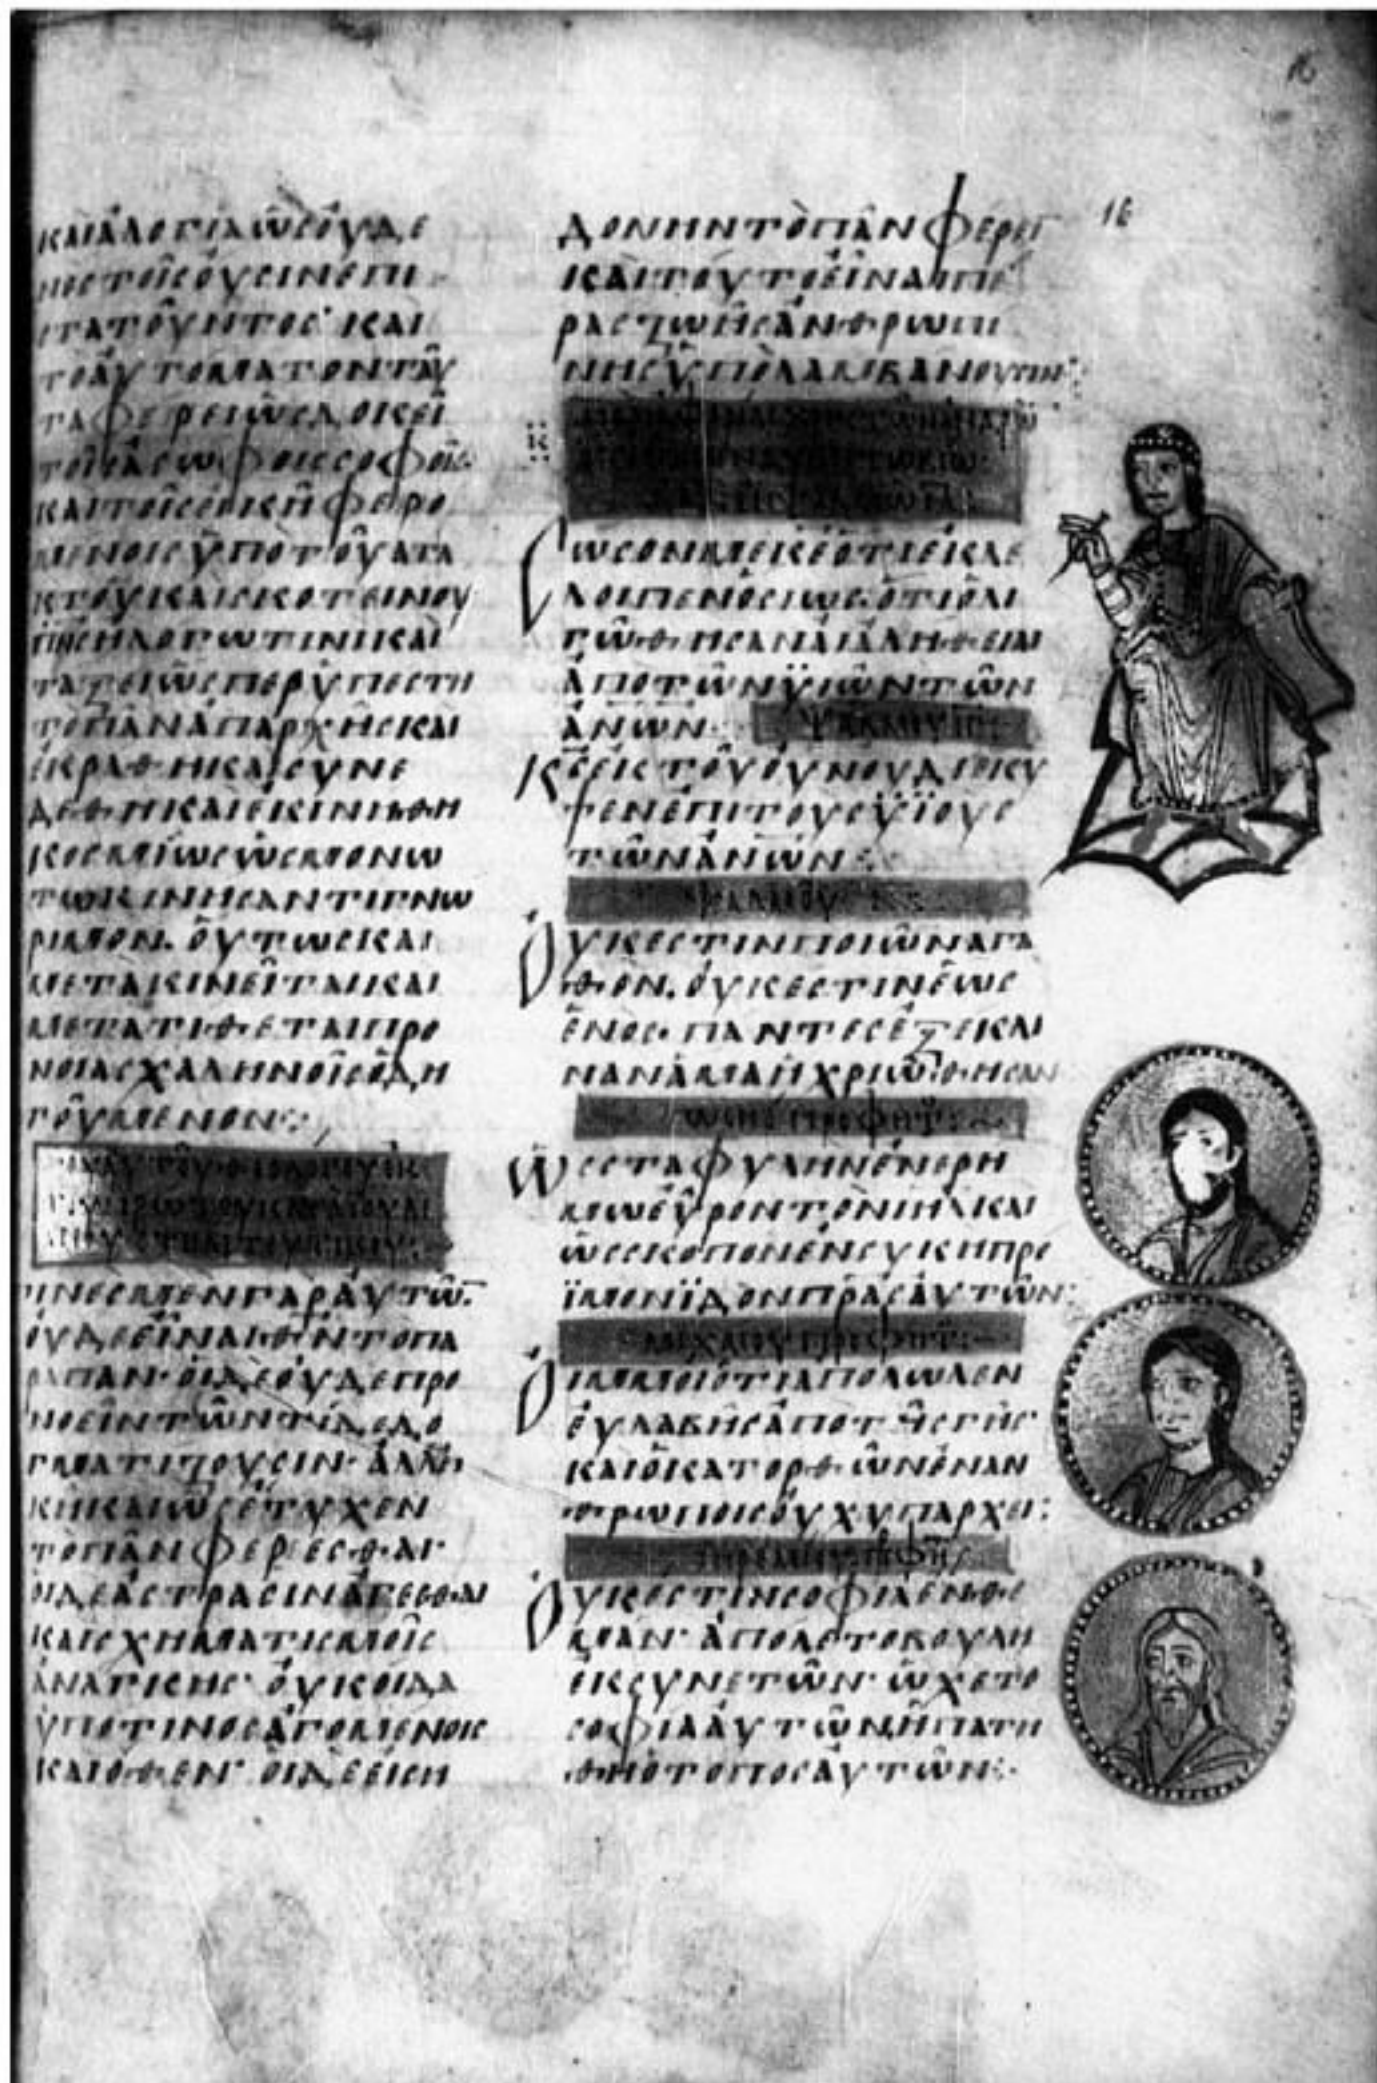 16
ΚΑΙ ἈΛΟΓΙΑ ὩΣ ΟΥΔΕ
ΝΟΣ ΤΟΙΣ ΟΥΣΙΝ ΕΠΙ
ΣΤΑΤΟΥΝΤΟΣ· ΚΑΙ
ΤΟ ΑΥΤΟΜΑΤΟΝ ΤΑΥ
ΤΑ ΦΕΡΕΙ ὩΣ ΔΟΚΕΙ
ΤΟΙΣ ΑΣΟΦΩΣ ΣΟΦΟΙΣ·
ΚΑΙ ΤΟΙΣ ΕΙΚΗ ΦΕΡΟ
ΜΕΝΟΙΣ ΥΠΟ ΤΟΥ ΑΤΑ
ΚΤΟΥ ΚΑΙ ΣΚΟΤΕΙΝΟΥ
ΠΝΣ Η ΛΟΓΩ ΤΙΝΙ ΚΑΙ
ΤΑΞΕΙ ὩΣΠΕΡ ΥΠΕΣΤΗ
ΤΟ ΠΑΝ ΑΠΑΡΧΗΣ ΚΑΙ
ΕΚΡΑΘΗ ΚΑΙ ΣΥΝΕ
ΔΕΘΗ ΚΑΙ ΕΚΙΝΗΘΗ
ΩΣ ΜΟΝΩ
ΤΩ ΚΙΝΗΣΑΝΤΙ ΓΝΩ
ΡΙΜΟΝ. ΟΥΤΩΣ ΚΑΙ
ΜΕΤΑΚΙΝΕΙΤΑΙ ΚΑΙ
ΜΕΤΑΤΙΘΕΤΑΙ ΠΡΟ
ΝΟΙΑΣ ΧΑΛΗΝΟΙΣ ΟΔΗ
ΓΟΥΜΕΝΟΝ:
ΤΟΥ ΑΥΤΟΥ ΘΕΟΛΟΓΟΥ ΕΚ
ΤΙΝΕΣ ΜΕΝ ΓΑΡ ΑΥΤΩΝ
ΟΥΔΕ ΕΙΝΑΙ ΘΝ ΤΟ ΠΑ
ΡΑΠΑΝ· ΟΙ ΔΕ ΟΥΔΕ ΠΡΟ
ΝΟΕΙΝ ΤΩΝ ΤΙΔΕ ΔΟ
ΓΜΑΤΙΖΟΥΣΙΝ· ΑΛΛ ΕΙ
ΚΗ ΚΑΙ ΩΣ ΕΤΥΧΕΝ
ΤΟ ΠΑΝ ΦΕΡΕΣΘΑΙ·
ΟΙ ΔΕ ΑΣΤΡΑΣΙΝ ΑΓΕΣΘΑΙ
ΚΑΙ ΣΧΗΜΑΤΙΣΜΟΙΣ
ΑΝΑΓΚΗΣ· ΟΥΚ ΟΙΔΑ
ΥΠΟ ΤΙΝΟΣ ΑΓΟΜΕΝΟΙΣ
ΚΑΙ ΟΘΕΝ· ΟΙ ΔΕ ΕΙΣ Η
16
ΔΟΝΗΝ ΤΟ ΠΑΝ ΦΕΡΕΙΝ
ΚΑΙ ΤΟΥΤΟ ΕΙΝΑΙ ΠΕ
ΡΑΣ ΖΩΗΣ ΑΝΘΡΩΠΙ
ΝΗΣ ΥΠΟΛΑΜΒΑΝΟΥΣΙΝ:
Κ
ΣΩΣΟΝ ΜΕ ΚΕ ΟΤΙ ΕΚΛΕ
ΛΟΙΠΕΝ ΟΣΙΟΣ· ΟΤΙ ΩΛΙ
ΓΩΘΗΣΑΝ ΑΙ ΑΛΗΘΕΙΑΙ
ΑΠΟ ΤΩΝ ΥΙΩΝ ΤΩΝ
ΑΝΩΝ: ΨΑΛΜΟΥ ΙΓ:
ΚΣ ΕΚ ΤΟΥ ΟΥΝΟΥ ΔΙΕΚΥ
ΨΕΝ ΕΠΙ ΤΟΥΣ ΥΙΟΥΣ
ΤΩΝ ΑΝΩΝ:
ΨΑΛΜΟΥ ΝΒ
ΟΥΚ ΕΣΤΙΝ ΠΟΙΩΝ ΑΓΑ
ΘΟΝ. ΟΥΚ ΕΣΤΙΝ ΕΩΣ
ΕΝΟΣ· ΠΑΝΤΕΣ ΕΞΕΚΛΙ
ΝΑΝ ΑΜΑ ΗΧΡΙΩΘΗΣΑΝ
ΩΣΗΕ ΠΡΟΦΗΤ:
ΩΣ ΣΤΑΦΥΛΗΝ ΕΝ ΕΡΗ
ΜΩ ΕΥΡΟΝ ΤΟΝ ΙΗΛ ΚΑΙ
ΩΣ ΣΚΟΠΟΝ ΕΝ ΣΥΚΗ ΠΡΟ
ΙΜΟΝ ΙΔΟΝ ΠΡΑΣ ΑΥΤΩΝ:
ΜΙΧΑΙΟΥ ΠΡΟΦΗΤ:
ΟΙΜΜΟΙ ΟΤΙ ΑΠΟΛΩΛΕΝ
ΕΥΛΑΒΗΣ ΑΠΟ ΤΗΣ ΓΗΣ·
ΚΑΙ Ο ΚΑΤΟΡΘΩΝ ΕΝ ΑΝ
ΘΡΩΠΟΙΣ ΟΥΧ ΥΠΑΡΧΕΙ:
ΙΗΡΕΜΙΟΥ ΠΡΦΗΣ
ΟΥΚ ΕΣΤΙΝ ΣΟΦΙΑ ΕΝ ΘΕ
ΜΑΝ· ΑΠΟΛΕΤΟ ΒΟΥΛΗ
ΕΚ ΣΥΝΕΤΩΝ· ΩΧΕΤΟ
ΣΟΦΙΑ ΑΥΤΩΝ, Η ΠΑΤΗ
ΘΗ Ο ΤΟΠΟΣ ΑΥΤΩΝ: